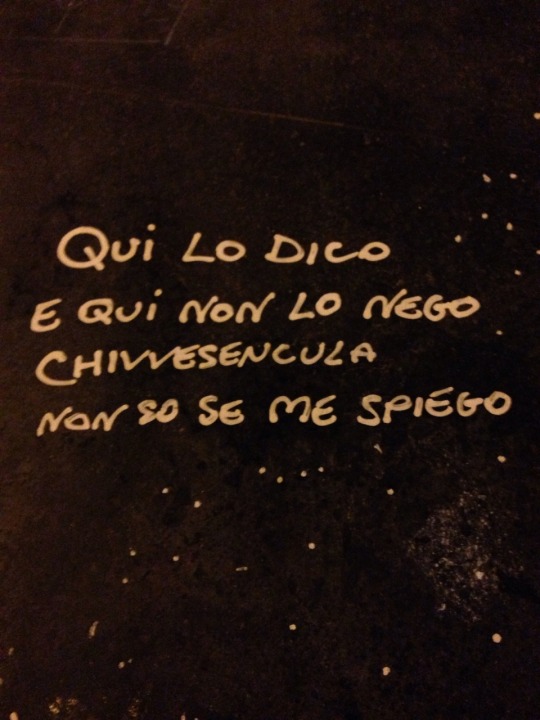 QUi LO DICO
E QUi NON LO NEGO
CHIVVESENCULA
NON SO SE ME SPIEGO